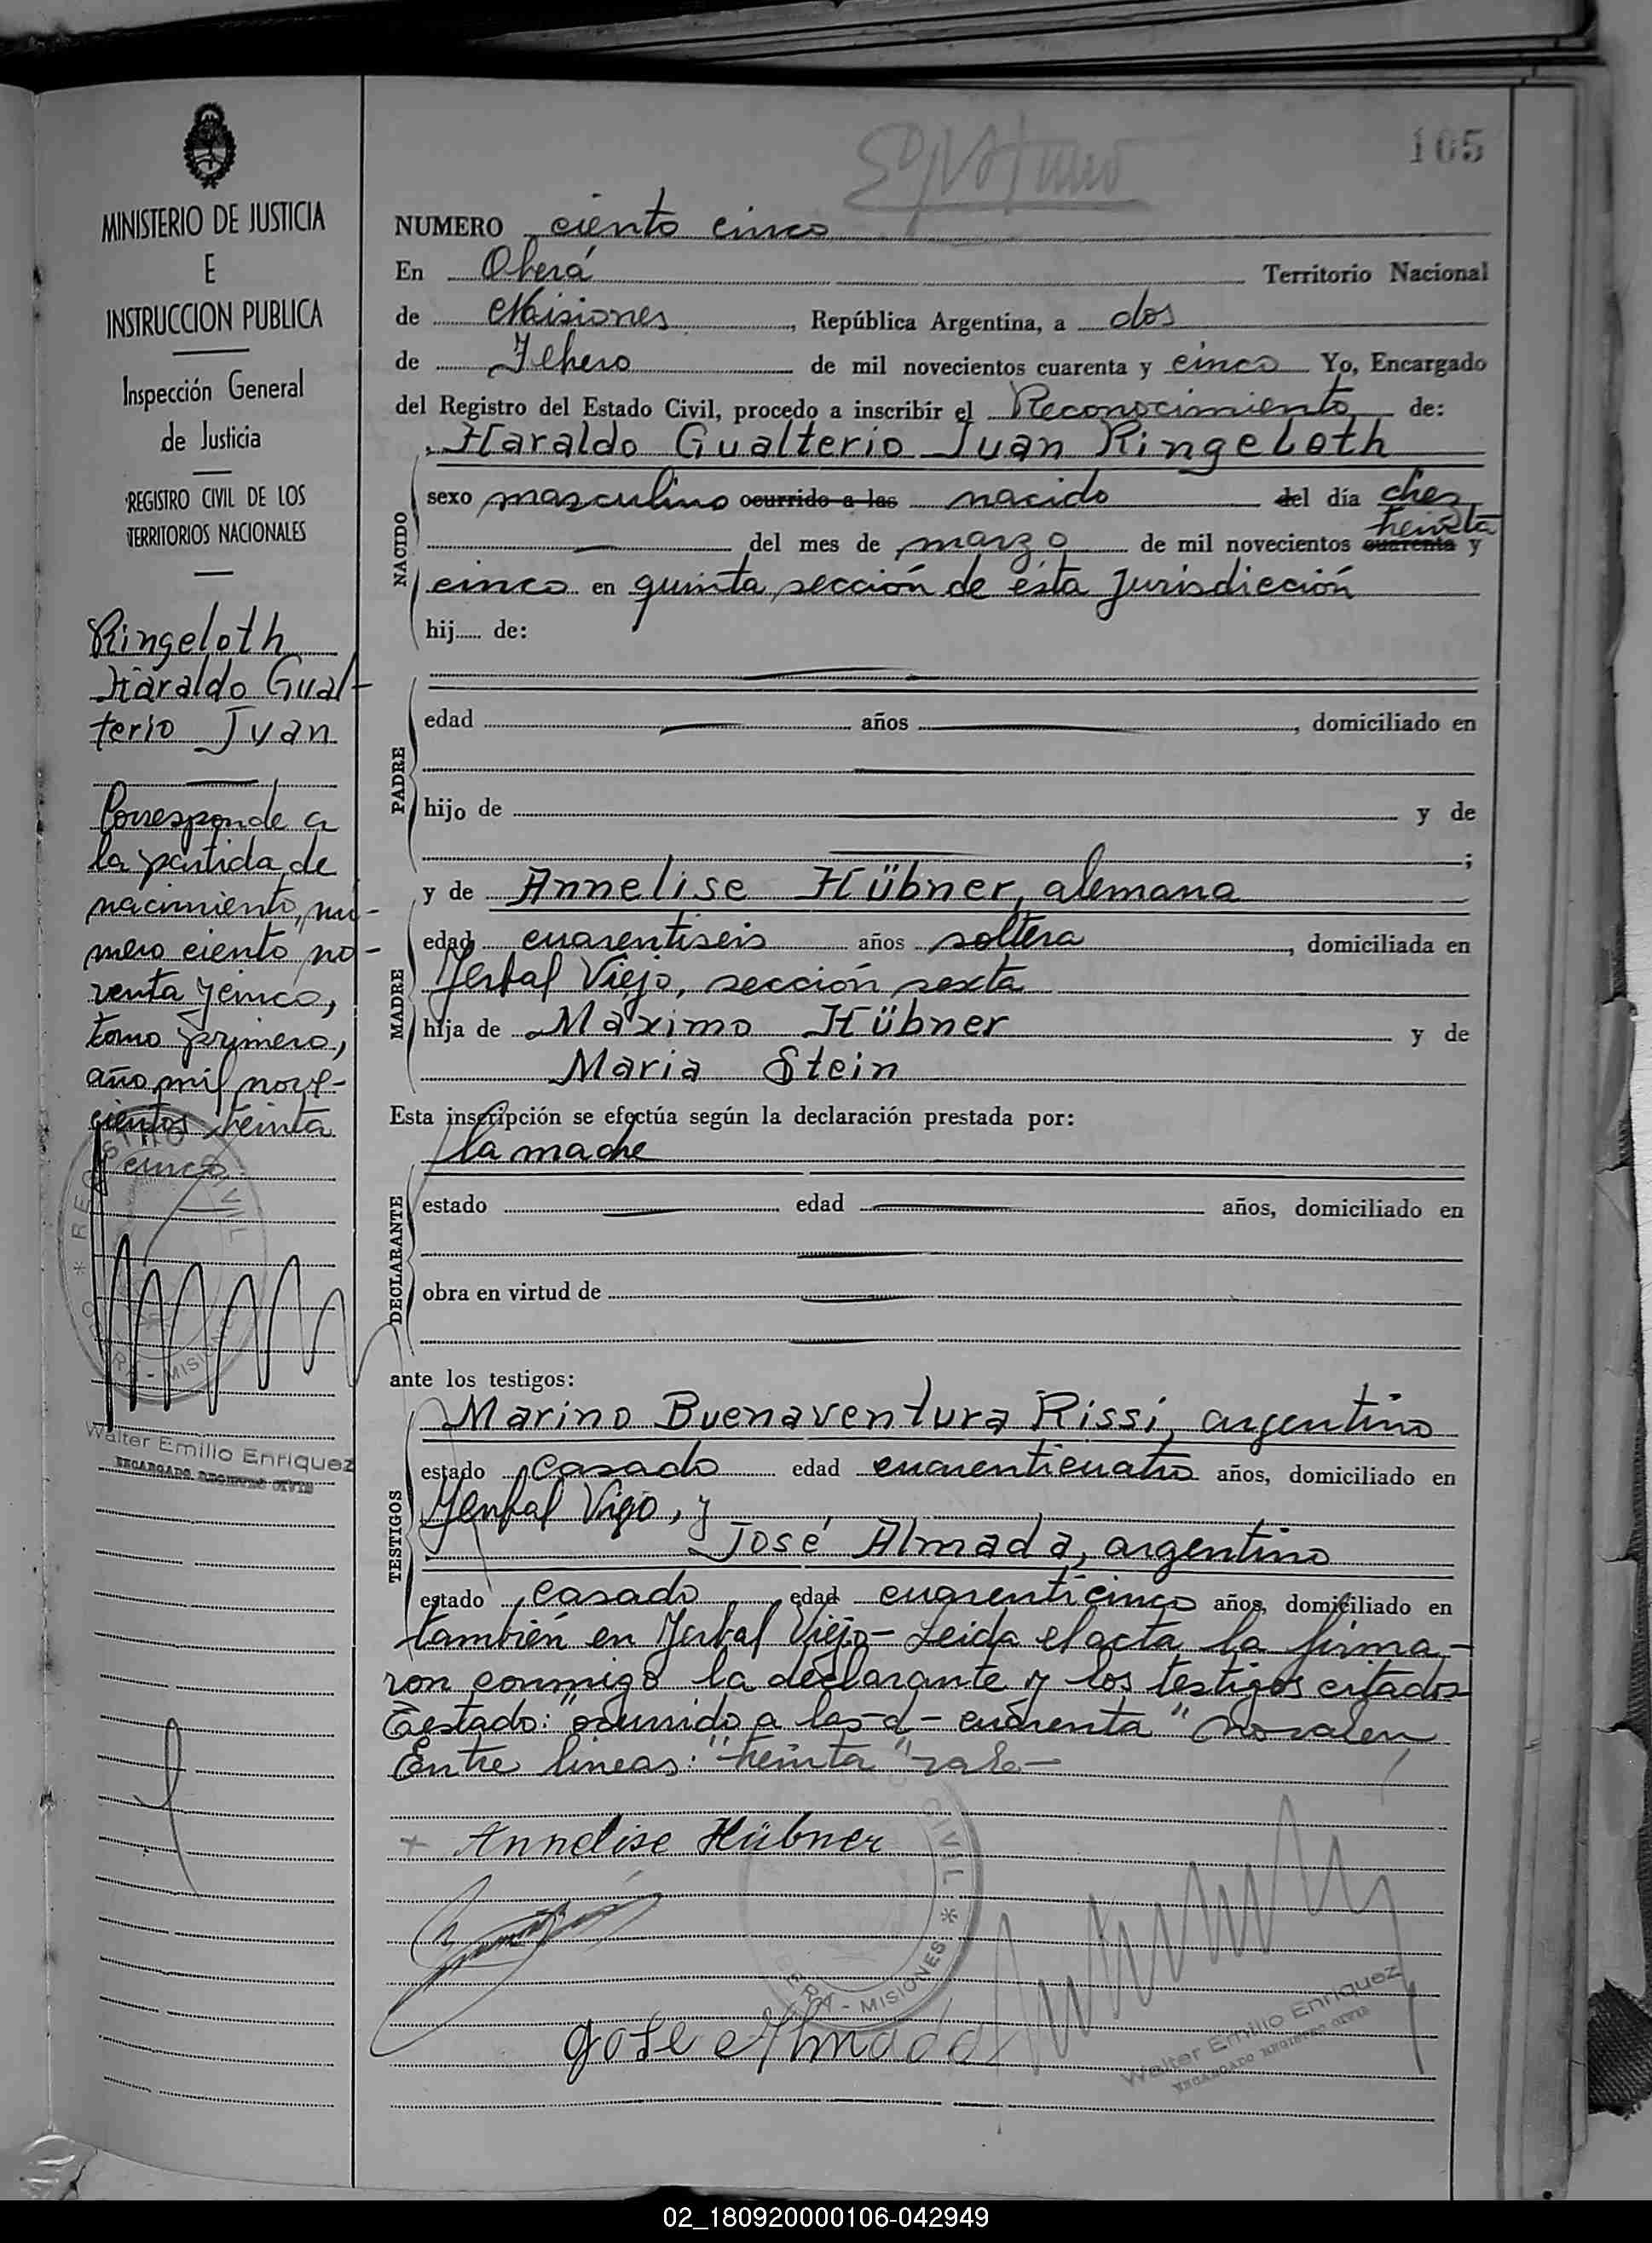 105
MINISTERIO DE JUSTICIA
E
INSTRUCCION PUBLICA
Inspección General
de Justicia
REGISTRO CIVIL DE LOS
TERRITORIOS NACIONALES
Ringeloth
Haraldo Gual-
terio Juan
Corresponde a
la partida de
nacimiento, nú-
mero ciento no-
venta y cinco,
tomo primero,
año mil nove-
cientos treinta
cinco
REGISTRO CIVIL
OBERA - MISIONES
Walter Emilio Enriquez
ENCARGADO REGISTRO CIVIL
NUMERO ciento cinco
En Oberá Territorio Nacional
de Misiones, República Argentina, a dos
de Febrero de mil novecientos cuarenta y cinco Yo, Encargado
del Registro del Estado Civil, procedo a inscribir el Reconocimiento de:
Haraldo Gualterio Juan Ringeloth
NACIDO
sexo masculino ocurrido a las nacido del día diez
treinta
del mes de marzo de mil novecientos cuarenta y
cinco en quinta sección de ésta Jurisdicción
hij de:
PADRE
edad años , domiciliado en
hijo de y de
;
y de Annelise Hübner, alemana
MADRE
edad cuarentiseis años soltera, domiciliada en
Yerbal Viejo, sección sexta
hija de Máximo Hübner y de
Maria Stein
Esta inscripción se efectúa según la declaración prestada por:
la madre
DECLARANTE
estado edad años, domiciliado en
obra en virtud de
ante los testigos:
TESTIGOS
Marino Buenaventura Rissi, argentino
estado casado edad cuarenticuatro años, domiciliado en
Yerbal Viejo, y
José Almada, argentino
estado casado edad cuarenticinco años, domiciliado en
también en Yerbal Viejo- Leida el acta la firma-
ron conmigo la declarante y los testigos citados
Testado: "ocurrido a las-d- cuarenta" no valen
Entre líneas: "treinta" vale-
+ Annelise Hübner
CIVIL
OBERA - MISIONES
José Almada
Walter Emilio Enriquez
ENCARGADO REGISTRO CIVIL
02_180920000106-042949